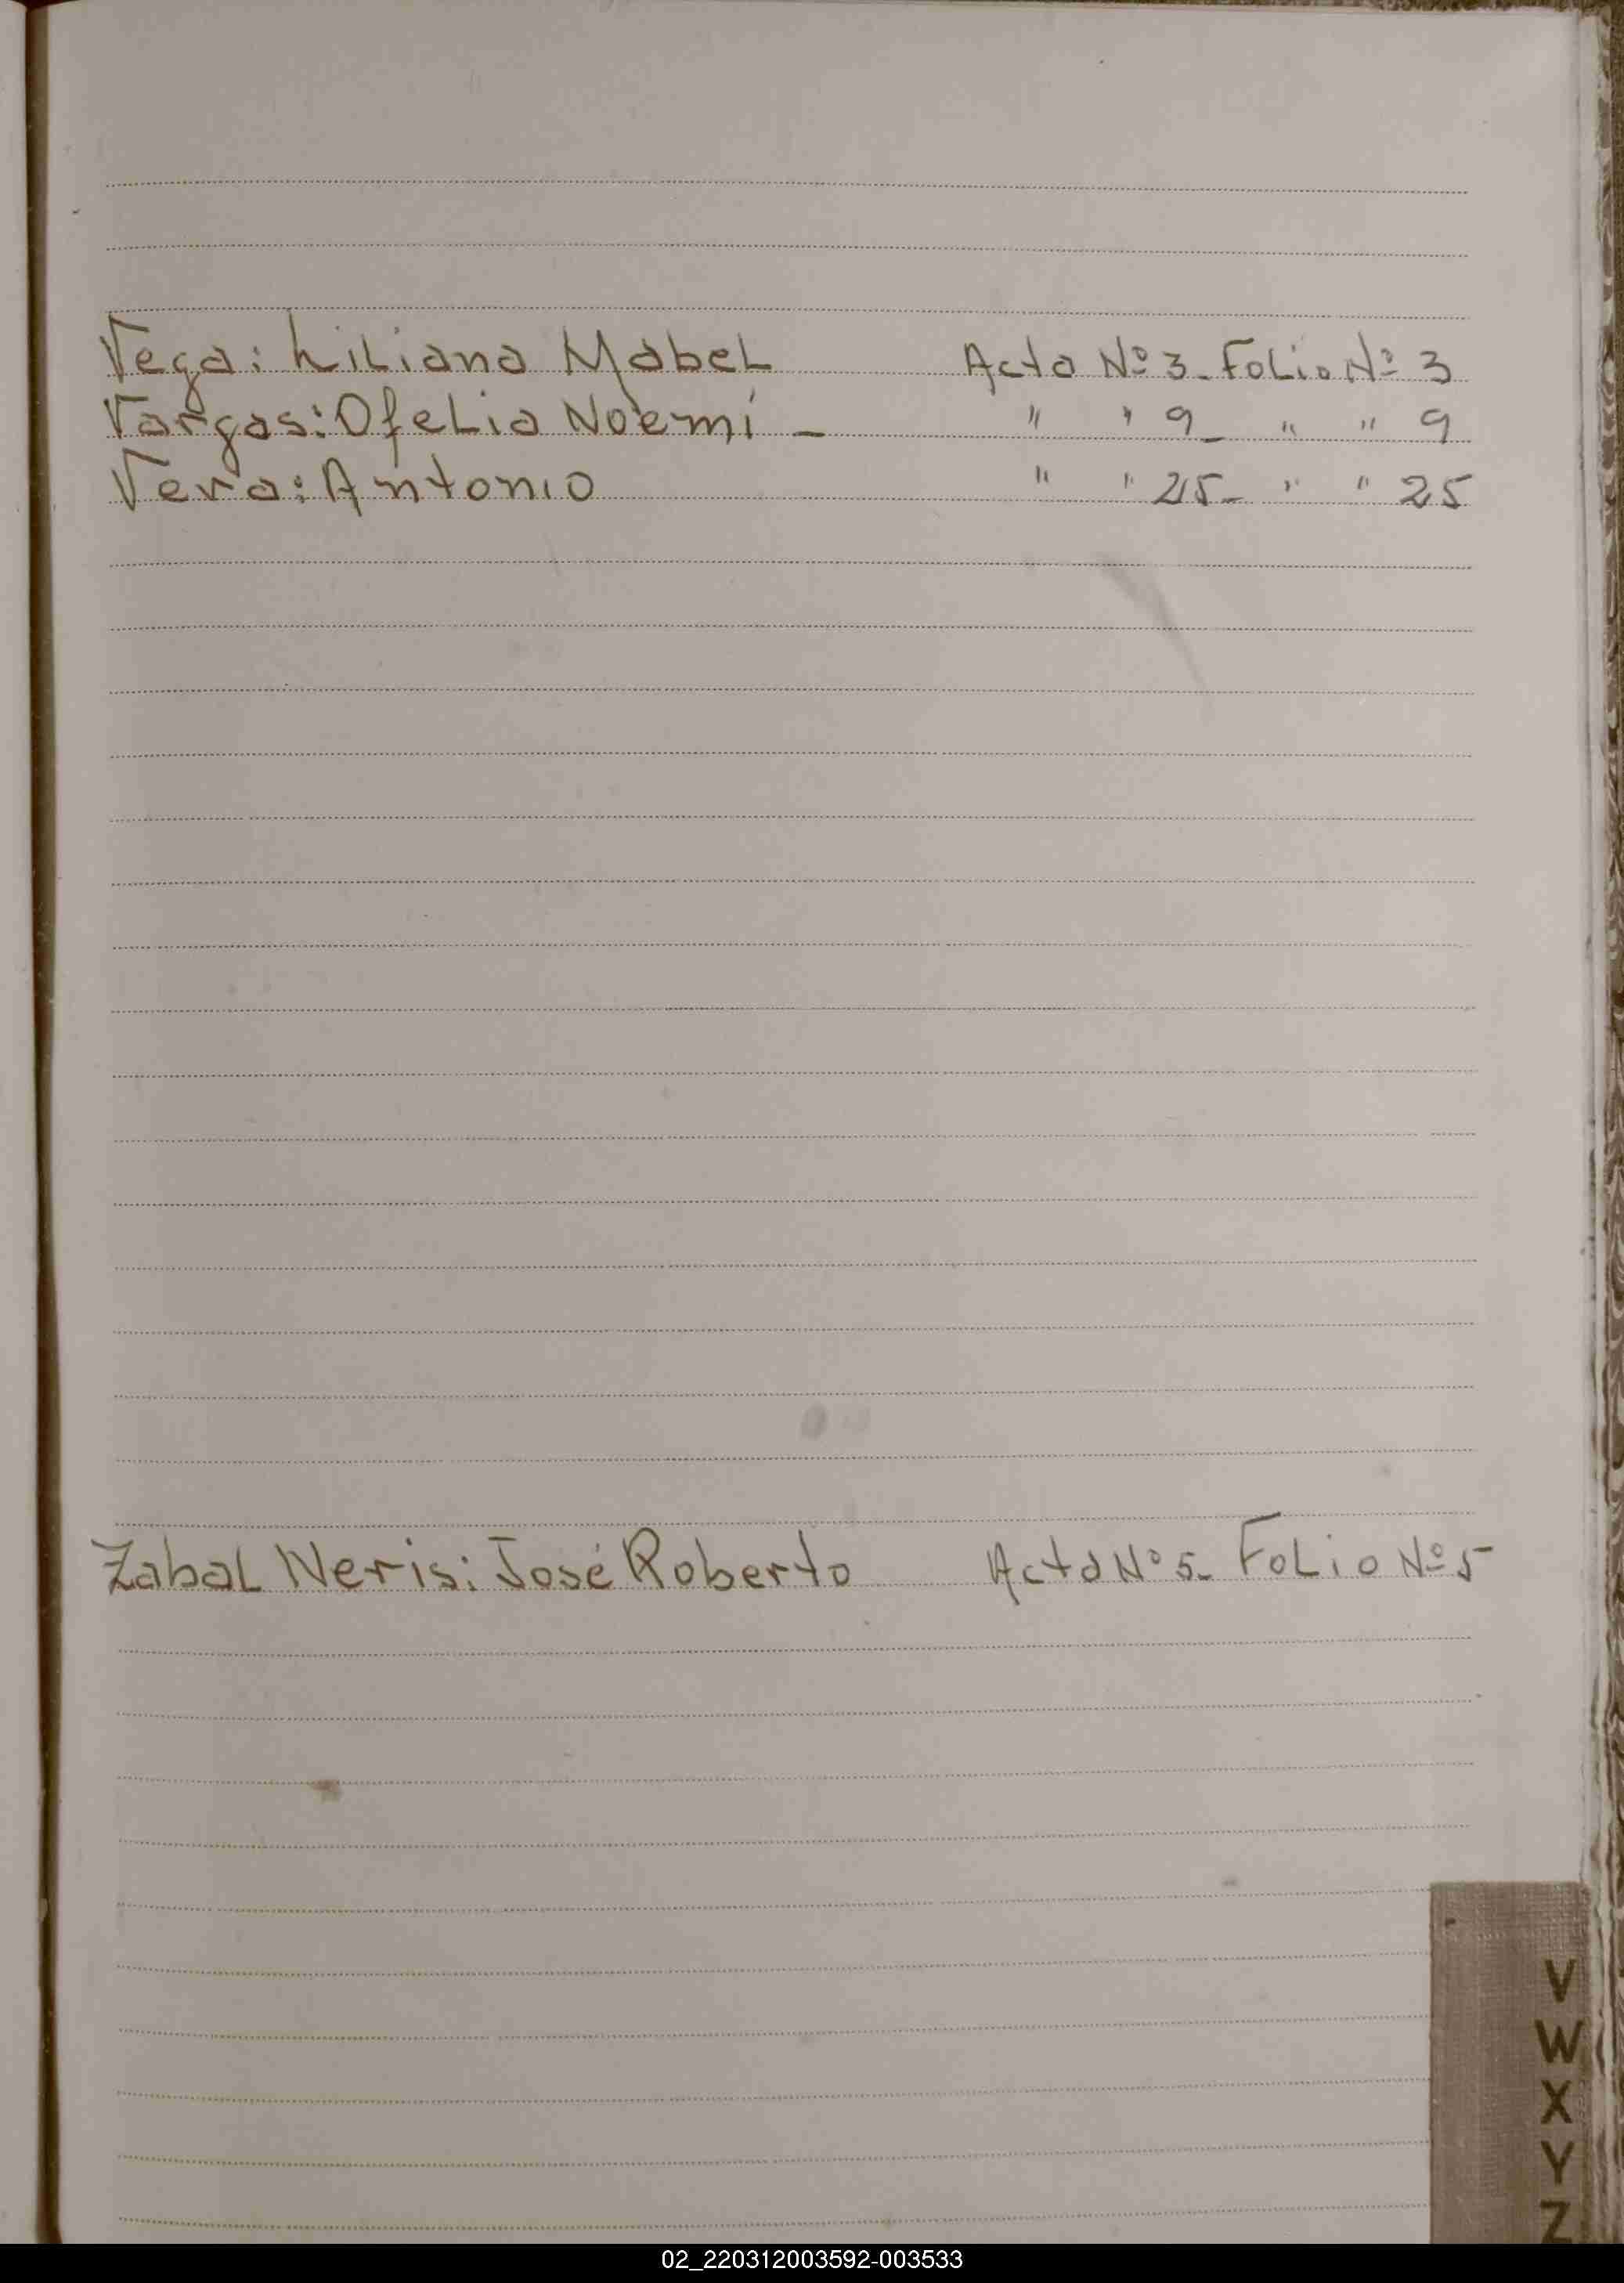 Vega: Liliana Mabel Acta Nº 3_ Folio Nº 3
Vargas: Ofelia Noemí _ " " 9_ " " 9
Vera: Antonio " " 25_ " " 25
Zabal Neris: José Roberto Acta Nº 5_ Folio Nº 5
V
W
X
Y
Z
02_220312003592-003533